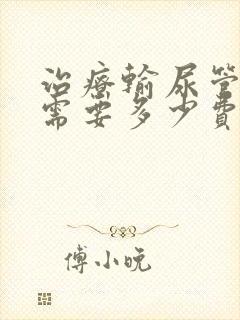 治療輸尿管
需要多少費
傅小晚